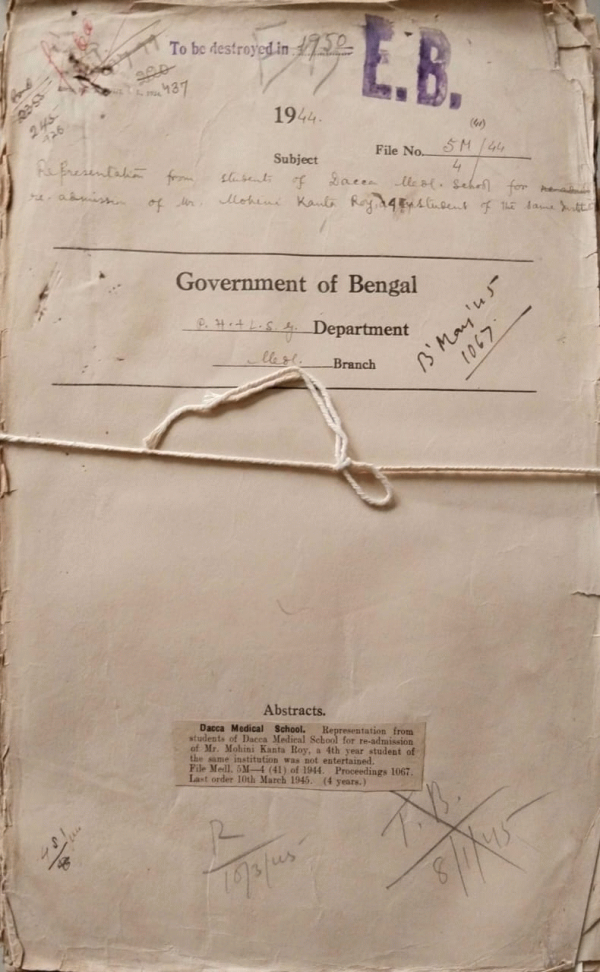 To be destroyed in 1950
E.B.
437
1944.
(41)
File No. 5M/44
4
Subject
Representation from students of Dacca Medl. School for
re-admission of Mr. Mohini Kanta Roy, a 4th yr student of the same
Government of Bengal
P.H.&L.S.G. Department
Medl. Branch
B' May '45
1067.
Abstracts.
Dacca Medical School. Representation from
students of Dacca Medical School for re-admission
of Mr. Mohini Kanta Roy, a 4th year student of
the same institution was not entertained.
File Medl. 5M—4 (41) of 1944. Proceedings 1067.
Last order 10th March 1945. (4 years.)
R
10/3/45
T.B.
8/1/45